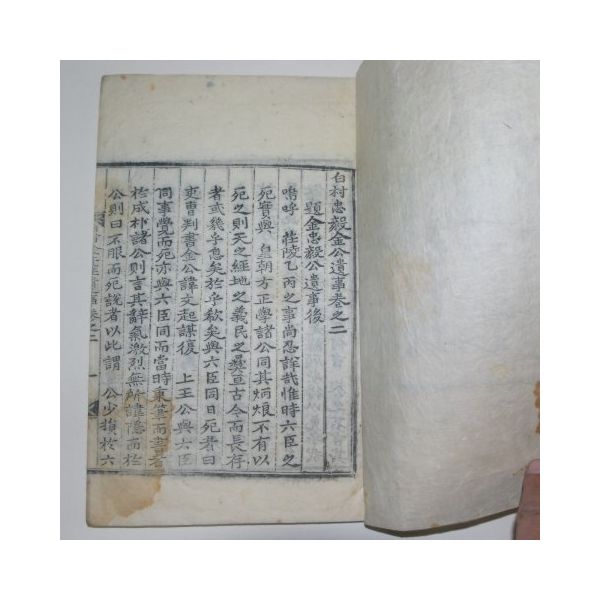 白村忠毅金公遺事卷之二
題金忠毅公遺事後
嗚呼 莊陵乙丙之事尚忍詳哉惟時六臣之
死實與 皇朝方正學諸公同其炳烺不有以
死之則天之經地之義民之彝亘古今而長存
者或幾乎息矣於乎欷矣與六臣同日死者曰
吏曹判書金公諱文起謀復 上王公與六臣
同事覺而死亦與六臣同而當時秉筆而書者
於成朴諸公則言其辭氣激烈無所諱隱而於
公則曰不服而死說者以此謂 公少損於六
卷之二 一